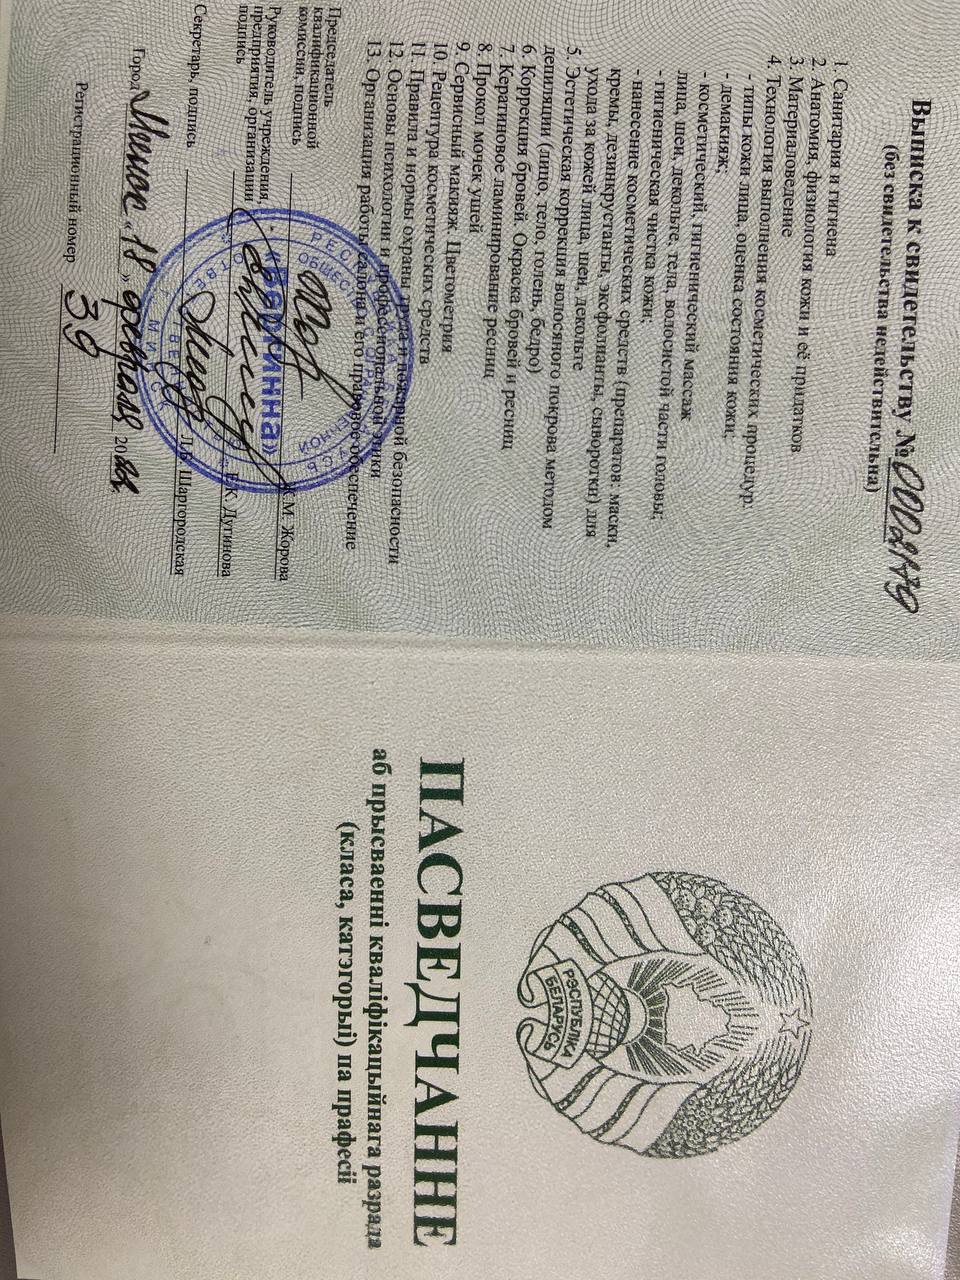 Выписка к свидетельству №
(без свидетельства недействительна)
1. Санитария и гигиена
2. Анатомия, физиология кожи и её придатков
3. Материаловедение
4. Технология выполнения косметических процедур:
- типы кожи лица, оценка состояния кожи;
- демакияж;
- косметический, гигиенический массаж
лица, шеи, декольте, тела, волосистой части головы;
- гигиеническая чистка кожи;
- нанесение косметических средств (препаратов: маски,
кремы, дезинкрустанты, эксфолианты, сыворотки) для
ухода за кожей лица, шеи, декольте
5. Эстетическая коррекция волосяного покрова методом
депиляции (лицо, тело, голень, бедро)
6. Коррекция бровей. Окраска бровей и ресниц
7. Кератиновое ламинирование ресниц
8. Прокол мочек ушей
9. Сервисный макияж. Цветометрия
10. Рецептура косметических средств
11. Правила и нормы охраны труда и пожарной безопасности
12. Основы психологии и профессиональной этики
13. Организация работы салона и его правовое обеспечение
Председатель
квалификационной
комиссии, подпись
К.М. Жорова
Руководитель учреждения,
предприятия, организации
подпись
Е.К. Дутинова
Секретарь, подпись
Л.Б. Шаргородская
«Берегинна»
Город Минск «18» февраля 20
Регистрационный номер 39
РЭСПУБЛІКА
БЕЛАРУСЬ
ПАСВЕДЧАННЕ
аб прысваенні кваліфікацыйнага разрада
(класа, катэгорыі) па прафесіі